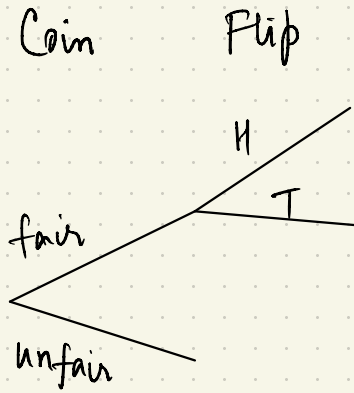 Coin Flip
H
T
fair
unfair